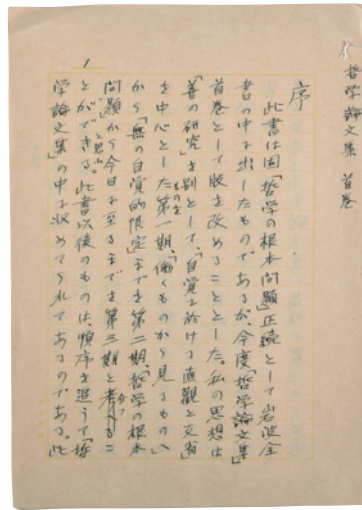 哲学論文集 首巻
序
此書は因「哲学の根本問題」正続として岩波全
書の中に出したものであるが、今度「哲学論文集」
首巻として版を改めることとした。私の思想は
「善の研究」を別として、「自覚に於ける直観と反省」
を中心としたものを第一期、「働くものから見るものへ」
から「無の自覚的限定」までを第二期、「哲学の根本
問題」から今日に至るまでを第三期と分つこ
とができると思ふ。此書以後のものは、順序を追うて「哲
学論文集」の中に収めてられてあるのである。此